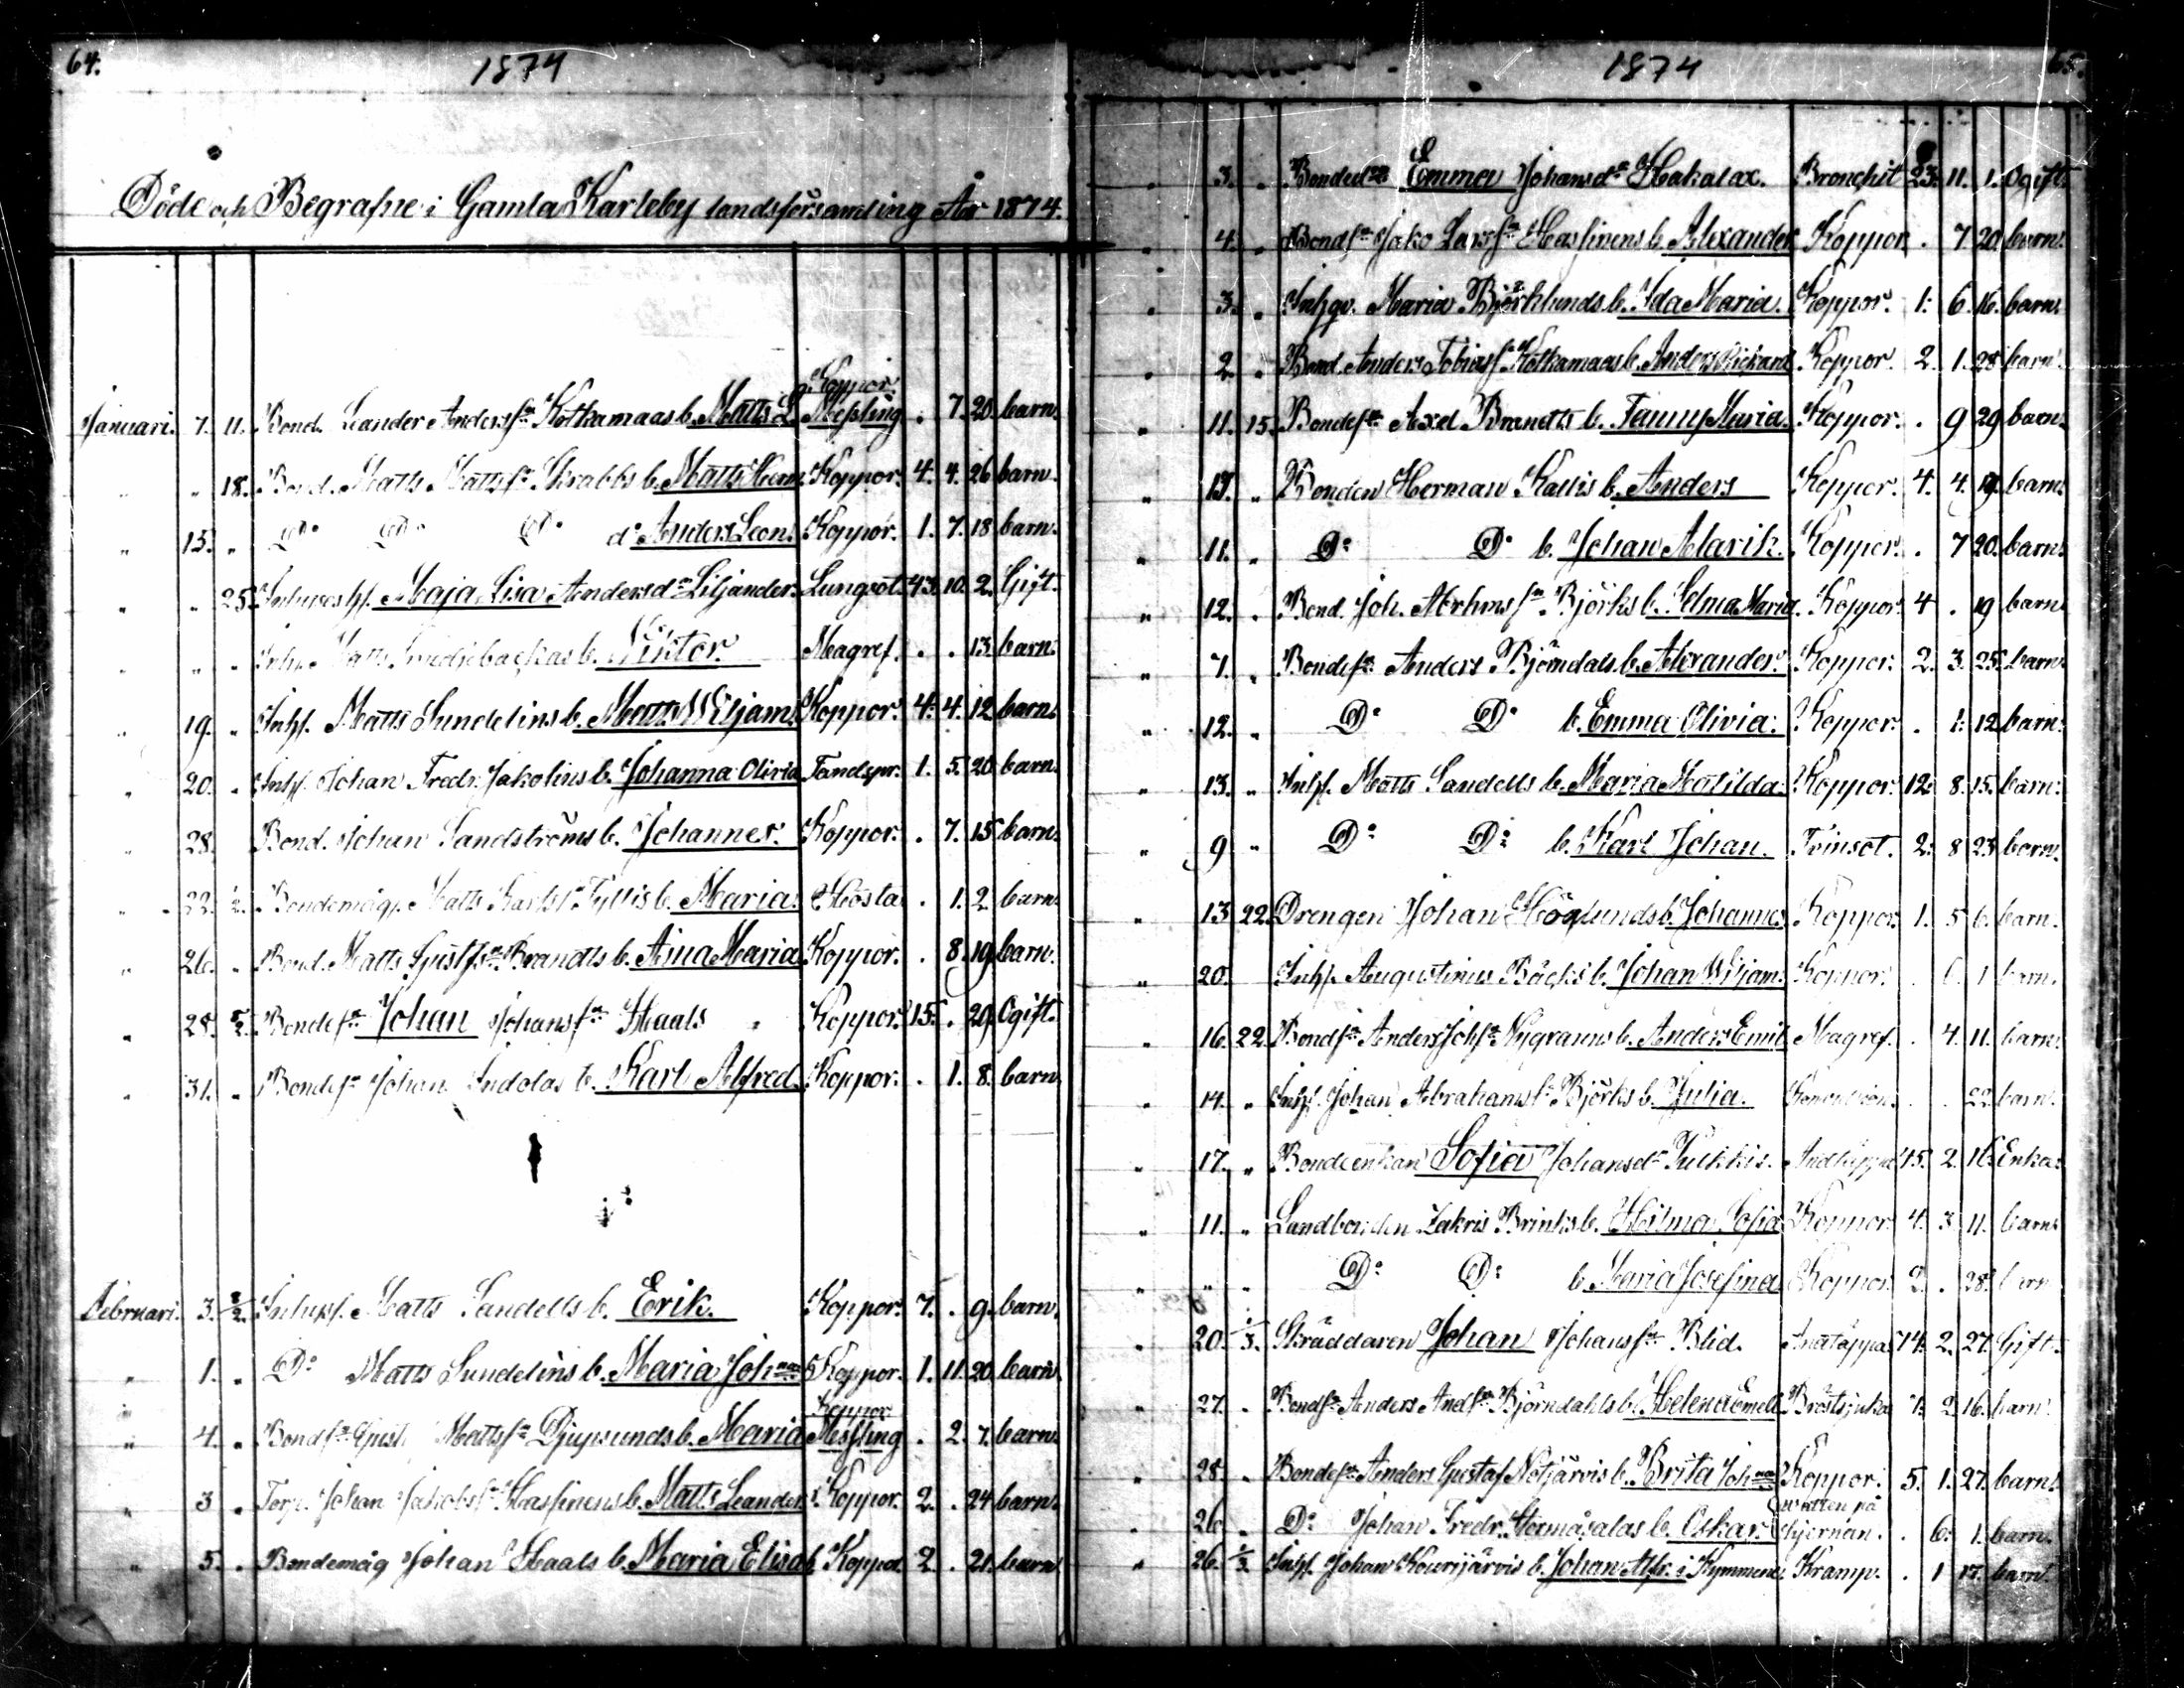 64.
1874
Döde och Begrafne i Gamla Karleby landsförsamling År 1874.
Januari. 7. 11. Bond. Leander Andersso Kotkamaas b. Matts L. Koppor. Messling . 7. 20. barn.
" " 18. Bond. Matts Mattsso Skrabbs b. Matts Herm. Koppor. 4. 4. 26 barn.
" 15. " Do Do Do do Anders Leon. Koppor. 1. 7. 18 barn.
" " 25. Inhyseshj. Maja Lisa Andersdr Liljander. Lungsot. 43. 10. 2. Gift.
" " " Inh. Matts Smedjebackas b. Viktor. Magref. . . 13. barn.
" 19. " Inhs. Matts Sundelins b. Matts Wiljam. Koppor. 4. 4. 12 barn.
" 20. " Inhs. Johan Fredr. Jakolins b. Johanna Olivia Tandspr. 1. 5. 20 barn.
" 28. Bond. Johan Sandströms b. Johannes. Koppor. . 7. 15 barn.
" 22. Bondemåg. Matts Karlss. Tyllis b. Maria. Hosta . 1. 2. barn.
" 26. " Bond. Matts Gustfso Brandts b. Aina Maria Koppor. . 8. 19. barn.
" 28. Bondeso Johan Johansso Haals Koppor. 15. . 29. Ogift.
" 31. " Bondeso Johan Indolas b. Karl Alfred. Koppor. . 1. 8. barn.
Februari. 3. 8/2. Inhyss. Matts Sandells b. Erik. Koppor. 7. . 9. barn.
" 1. " Do Matts Sundelins b. Maria Johna Koppor. 1. 11. 20. barn.
" 4. " Bondso Gust. Mattsso Djupsunds b. Maria Koppor Messling . 2. 7. barn.
" 3 " Torp. Johan Jakobsso Hassinens b. Matts Leander. Koppor. 2. . 24 barn.
" 5. " Bondemåg Johan Haals b. Maria Elisab. Koppor. 2. . 21. barn
1874
65.
" 3. " Bondedr Emma Johansdr Hakalax. Bronchit 23. 11. 1. Ogift.
" 4. " Bondso Jako Larsso Hassinens b. Alexander Koppor . 7 20. barn.
" 3. " Inhqv. Maria Björklunds b. Ida Maria. Koppor. 1. 6. 16. barn.
" 2. " Bond. Anders Tobiass. Kotkamaas b. Anders Rickard Koppor. 2. 1. 28 barn.
" 11. 15. Bondeso Axel Brandts b. Fanny Maria. Koppor. . 9 29 barn.
" " Bonden Herman Kallis b. Anders Koppor. 4. 4. 19. barn.
" 11. " Do Do b. Johan Alarik. Koppor. . 7 20. barn.
" 12. " Bond. Joh. Abrhmsso Björks b. Selma Maria. Koppor. 4 . 19 barn.
" 7. " Bondeso Anders Björndals b. Alexander. Koppor. 2. 3. 25. barn.
" 12. " Do Do b. Emma Olivia. Koppor. . 1. 12. barn.
" 13. " Inhs. Matts Sandells b. Maria Matilda. Koppor. 12. 8. 15. barn.
" 9 " Do Do b. Karl Johan. Tvinsot. 2. 8 23 barn.
" 13 22. Drengen Johan Höglunds b. Johannes Koppor. 1. 5 6. barn.
" 20. Inhs. Augustinus Bäcks b. Johan Wiljam. Koppor. 1 barn.
" 16. 22. Bondso Anders Johso Nygranns b. Anders Emil Magref. . 4. 11. barn.
" 14. " Inhs. Johan Abrahamsso Björks b. Julia. Konvulsion. . . 22. barn.
" 17. " Bondeenkan Sofia Johansdr 2. 16. Enka.
" 11. " Landbonden Zakris Brinks b. Hilma Sofia Koppor. 4. 3 11. barn.
" " " Do Do b. Maria Josefina Koppor. 2. . 28. barn
" 20. 1/3. Skräddaren Johan Johansso Blid. Andtäppa 74. 2. 27. Gift.
" 27. " Bondso Anders Andso Björndahls b. Helena Emel. Bröstsjuka 2 16. barn.
" 28. " Bondeso Anders Gustaf Nötjärvis b. Brita Johna Koppor. 5. 1. 27. barn.
" 26 " Do Johan Fredr. b. Oskar. Watten på hjernan. . 6. 1. barn.
" 26. 1/3. Inhs. Johan Kourijärvis b. Johan Alfr. i Kymmene. Kramp. . 1 17. barn.